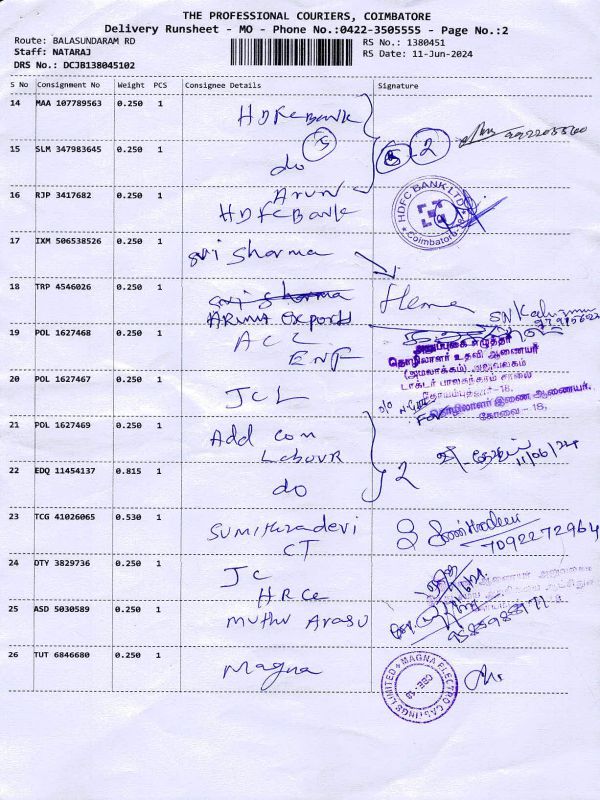 THE PROFESSIONAL COURIERS, COIMBATORE
Delivery Runsheet - MO - Phone No.:0422-3505555 - Page No.:2
Route: BALASUNDARAM RD
RS No.: 1380451
Staff: NATARAJ
RS Date: 11-Jun-2024
DRS No.: DCJB138045102
S No Consignment No Weight PCS Consignee Details Signature
14 MAA 107789563 0.250 1 HDFC Bank
15 SLM 347983645 0.250 1 do 5
5 2
16 RJP 3417682 0.250 1 Arun
HDFC Bank
HDFC BANK LTD
Coimbatore-18
17 IXM 506538526 0.250 1 Sri Sharma
18 TRP 4546026 0.250 1 Sri Sharma Hema
ARUNA Exports
19 POL 1627468 0.250 1 ACL
ENF
தொழிலாளர் உதவி ஆணையர்
(அமலாக்கம்) அலுவலகம்
20 POL 1627467 0.250 1 JCL
தொழிலாளர் இணை ஆணையர்.
கோவை - 18.
21 POL 1627469 0.250 1 Add Com
Labour
11/06/24
22 EDQ 11454137 0.815 1 do 2
23 TCG 41026065 0.530 1 Sumithradevi
CT
7092272964
24 DTY 3829736 0.250 1 JC
HRCE
25 ASD 5030589 0.250 1 Muthu Arasu
26 TUT 6846680 0.250 1 Magna
MAGNA ELECTRO CASTINGS LIMITED
CBE - 18